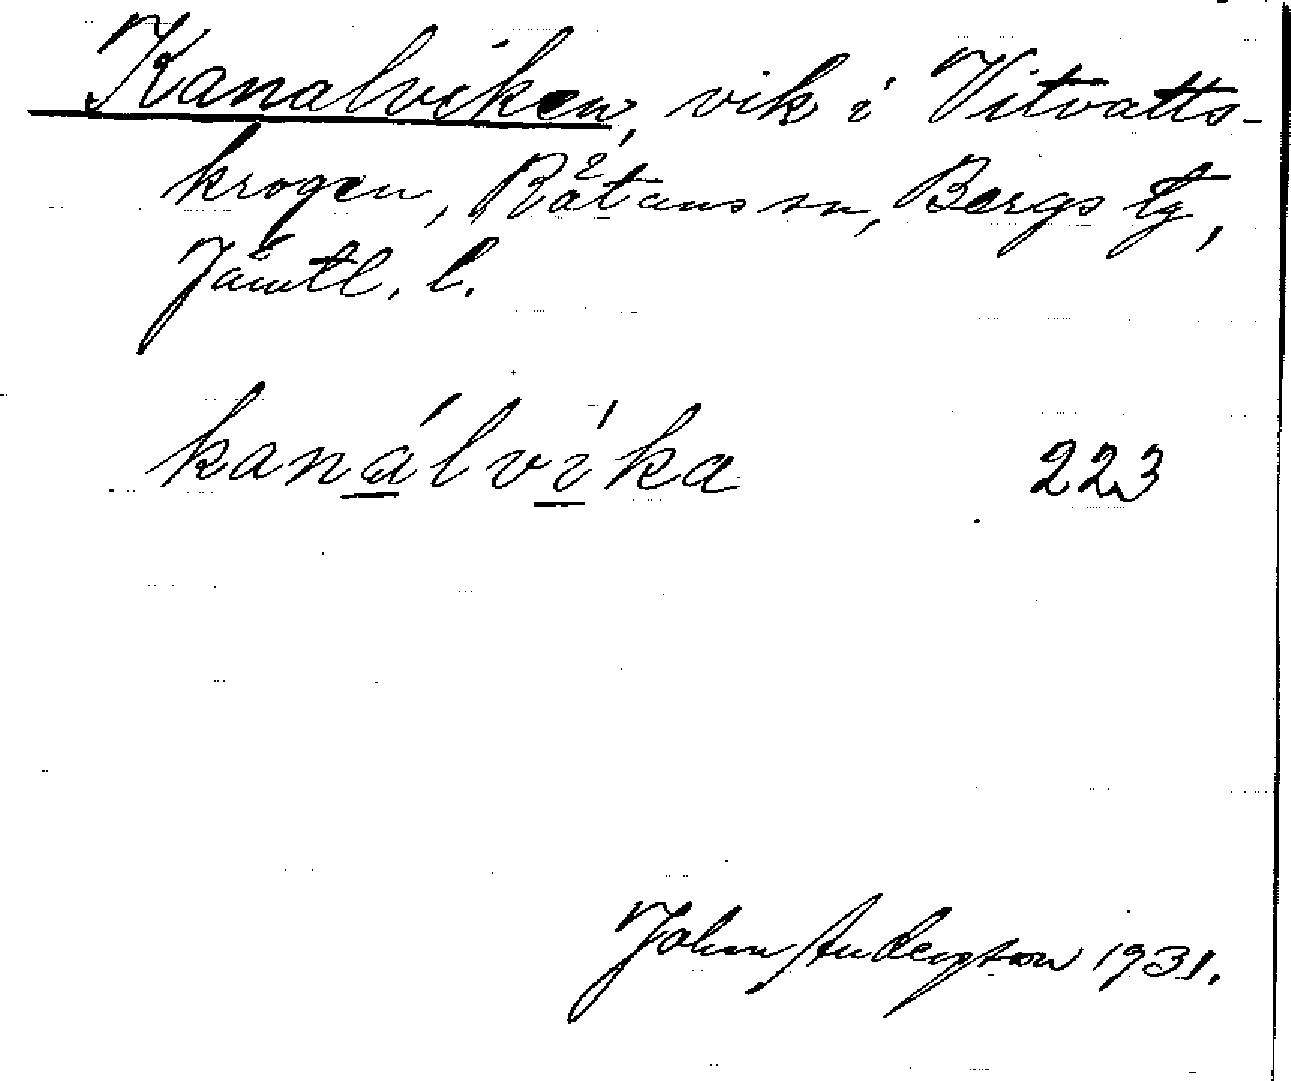 Kanalviken, vik i Vitvatts-
krogen, Rätans sn, Bergs tg,
Jämtl. l.
kanálvíka 223
John Anderson 1931.